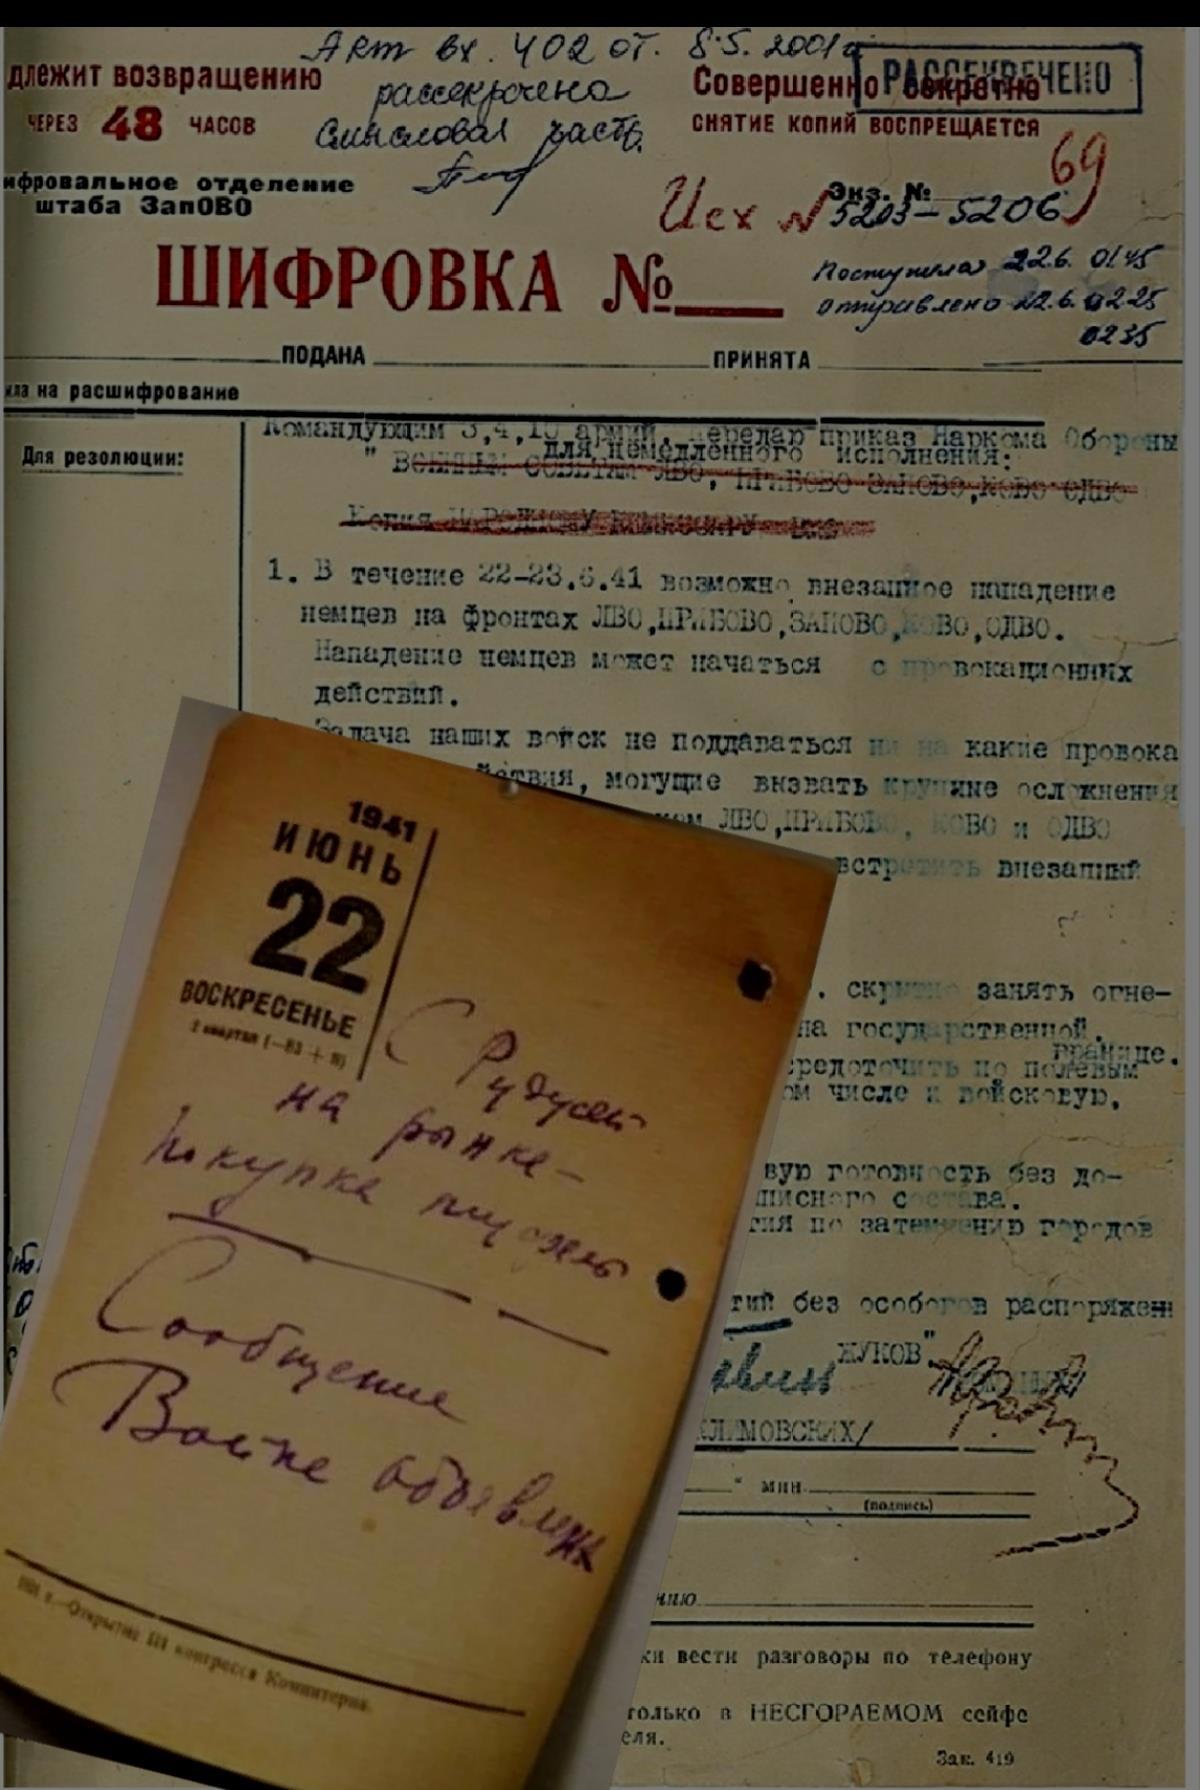 Акт вх. 402 от. 8.5. 2001г
длежит возвращению
через 48 часов
рассекречено
смысловая часть.
Совершенно секретно
РАССЕКРЕЧЕНО
СНЯТИЕ КОПИЙ ВОСПРЕЩАЕТСЯ
69
ифровальное отделение
штаба ЗапОВО
Экз. №
Исх № 5203-5206
ШИФРОВКА №
Поступила 22.6. 01.45
Отправлено 22.6. 02.25
02.35
ПОДАНА ПРИНЯТА
на расшифрование
Для резолюции:
Командующим 3,4,10 армий. Передар приказ Наркома Обороны
для немедленного исполнения:
" ВОЕННЫМ СОВЕТАМ ЛВО, ПРИБОВО ЗАПОВО, КОВО ОДВО
Копия НАРОДНОМУ КОМИССАРУ
1. В течение 22-23.6.41 возможно внезапное нападение
немцев на фронтах ЛВО,ПРИБОВО,ЗАПОВО,КОВО,ОДВО.
Нападение немцев может начаться с провокационных
действий.
Задача наших войск не поддаваться ни на какие провока
йствия, могущие вызвать крупные осложнения
ЛВО,ПРИБОВО, КОВО и ОДВО
встретить внезапный
. скрытно занять огне-
на государственной.
границе.
средоточить по полевым
ом числе и войсковую,
вую готовность без до-
писного состава.
тия по затемнению городов
тий без особогов распоряжен
ЖУКОВ".
КЛИМОВСКИХ/
" мин
(подпись)
нию
ки вести разговоры по телефону
только в НЕСГОРАЕМОМ сейфе
еля.
Зак. 419
1941
ИЮНЬ
22
ВОСКРЕСЕНЬЕ
2 квартал
С Рудусей
на рынке-
покупка
Сообщение
Войне объявлена
Открытие III конгресса Коминтерна.